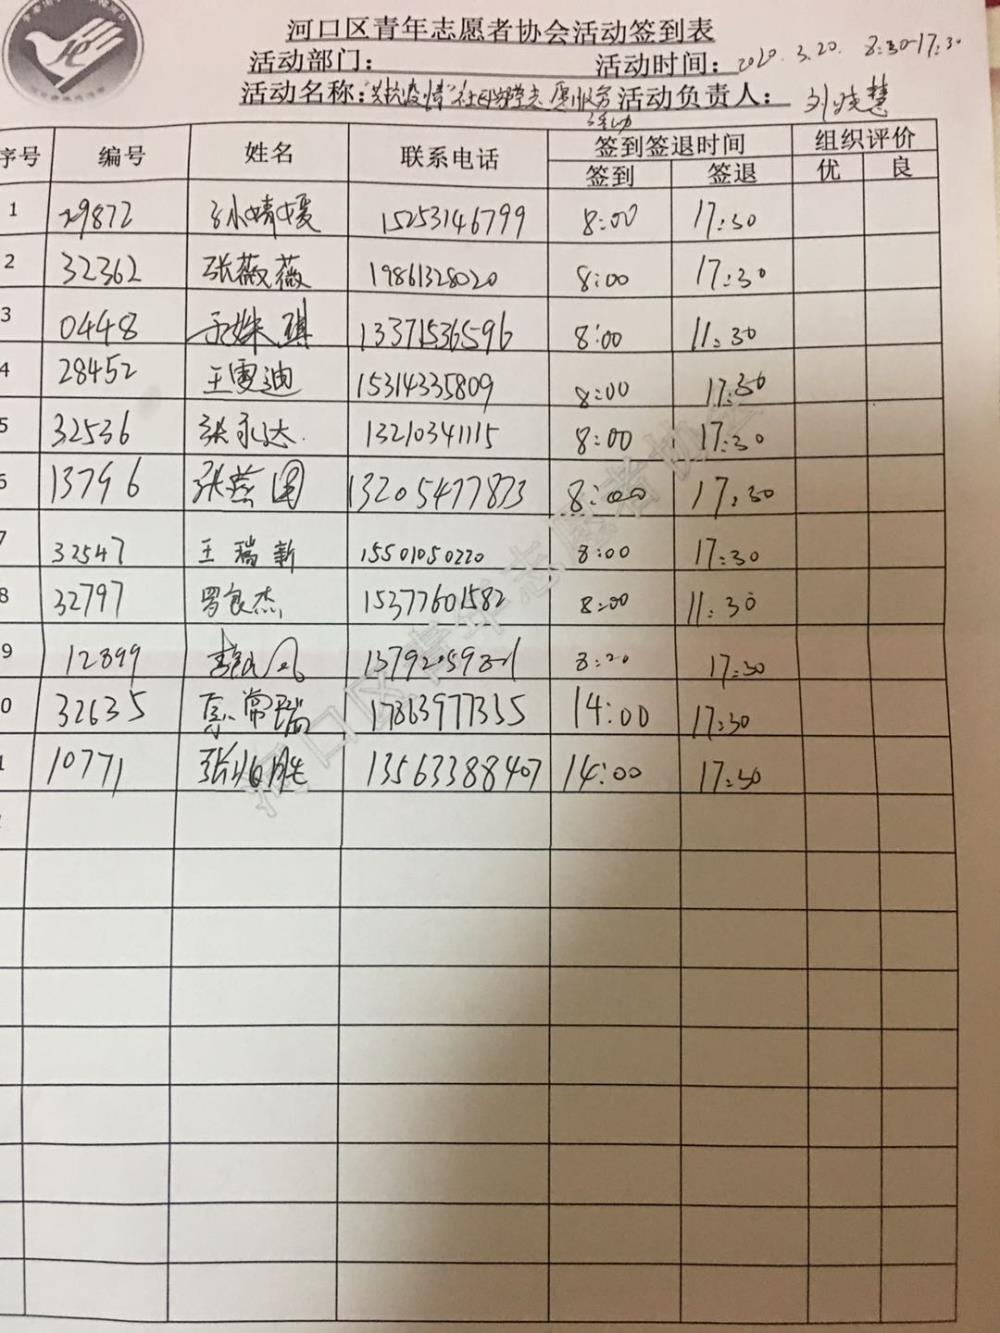 河口区青年志愿者协会活动签到表
活动部门： 活动时间：2020.3.20. 8:30-17:30
活动名称："共抗疫情"社区 志愿服务 活动负责人：刘晓慧
活动
序号 编号 姓名 联系电话 签到签退时间 组织评价
签到 签退 优 良
1 29872 孙婧媛 15253146799 8:00 17:30
2 32362 张薇薇 19861328020 8:00 17:30
3 0448 于姝琪 13371536596 8:00 11:30
4 28452 王雪迪 15314335809 8:00 17:30
5 32536 张永达 13210341115 8:00 17:30
6 13796 张蕊 13205477873 8:00 17:30
7 32547 王瑞新 15501050220 8:00 17:30
8 32797 罗良杰 15377601582 8:00 11:30
9 12899 李 风 13792059821 8:20 17:30
0 32635 綦常瑞 17863977355 14:00 17:30
1 10771 张 胜 13563388407 14:00 17:30
河口区青年志愿者协会